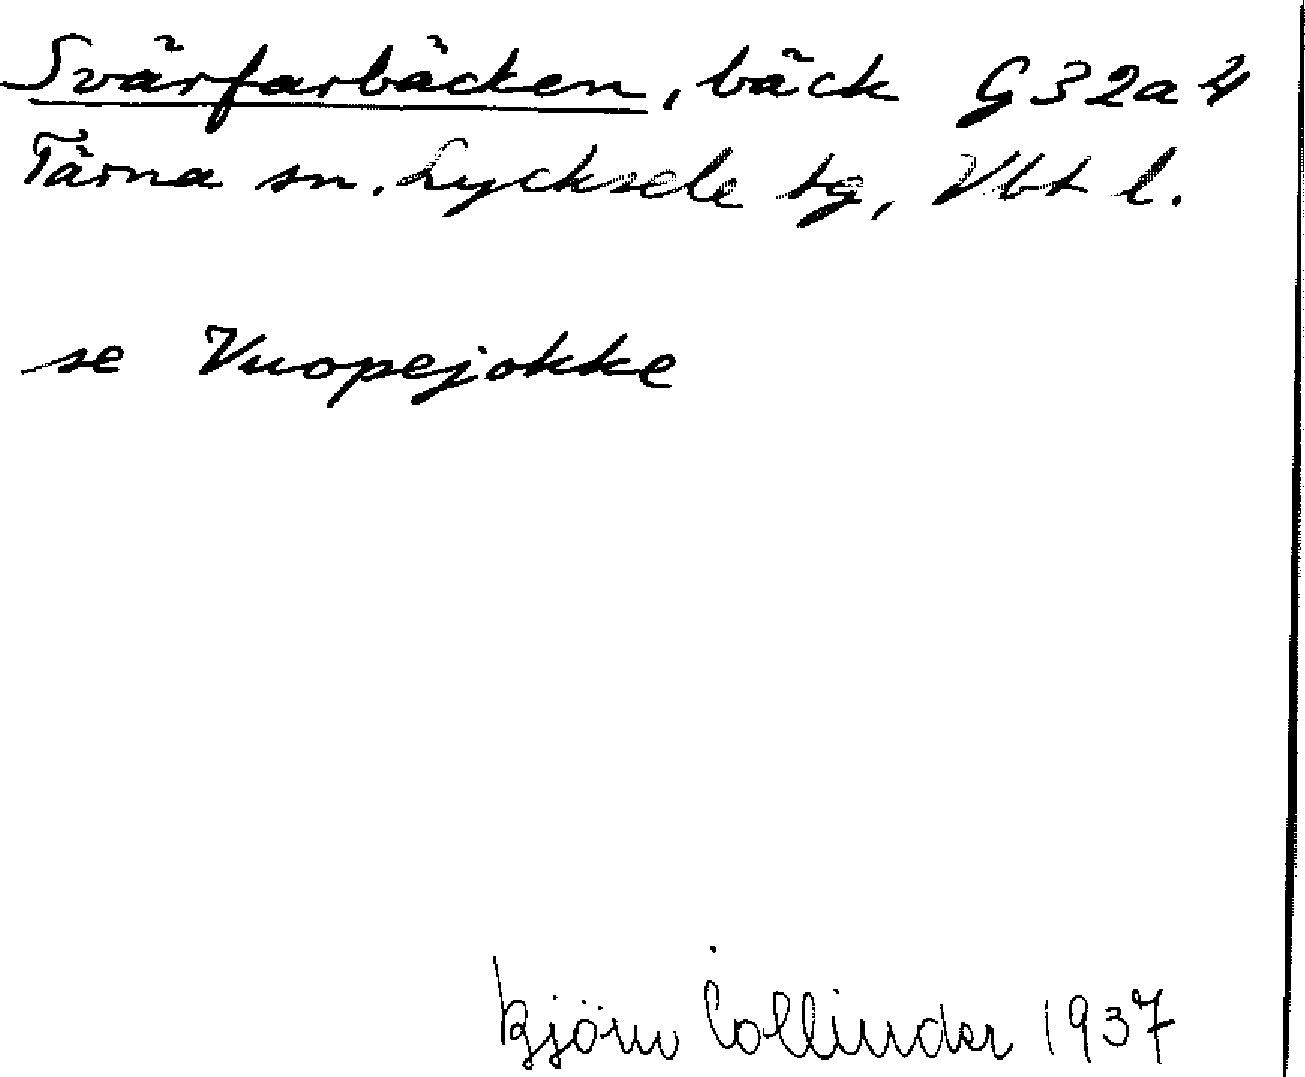 Svärfarbäcken, bäck G32a4
Tärna sn. Lycksele tg, Vbt l.
se Vuopejokke
Björn Collinder 1937